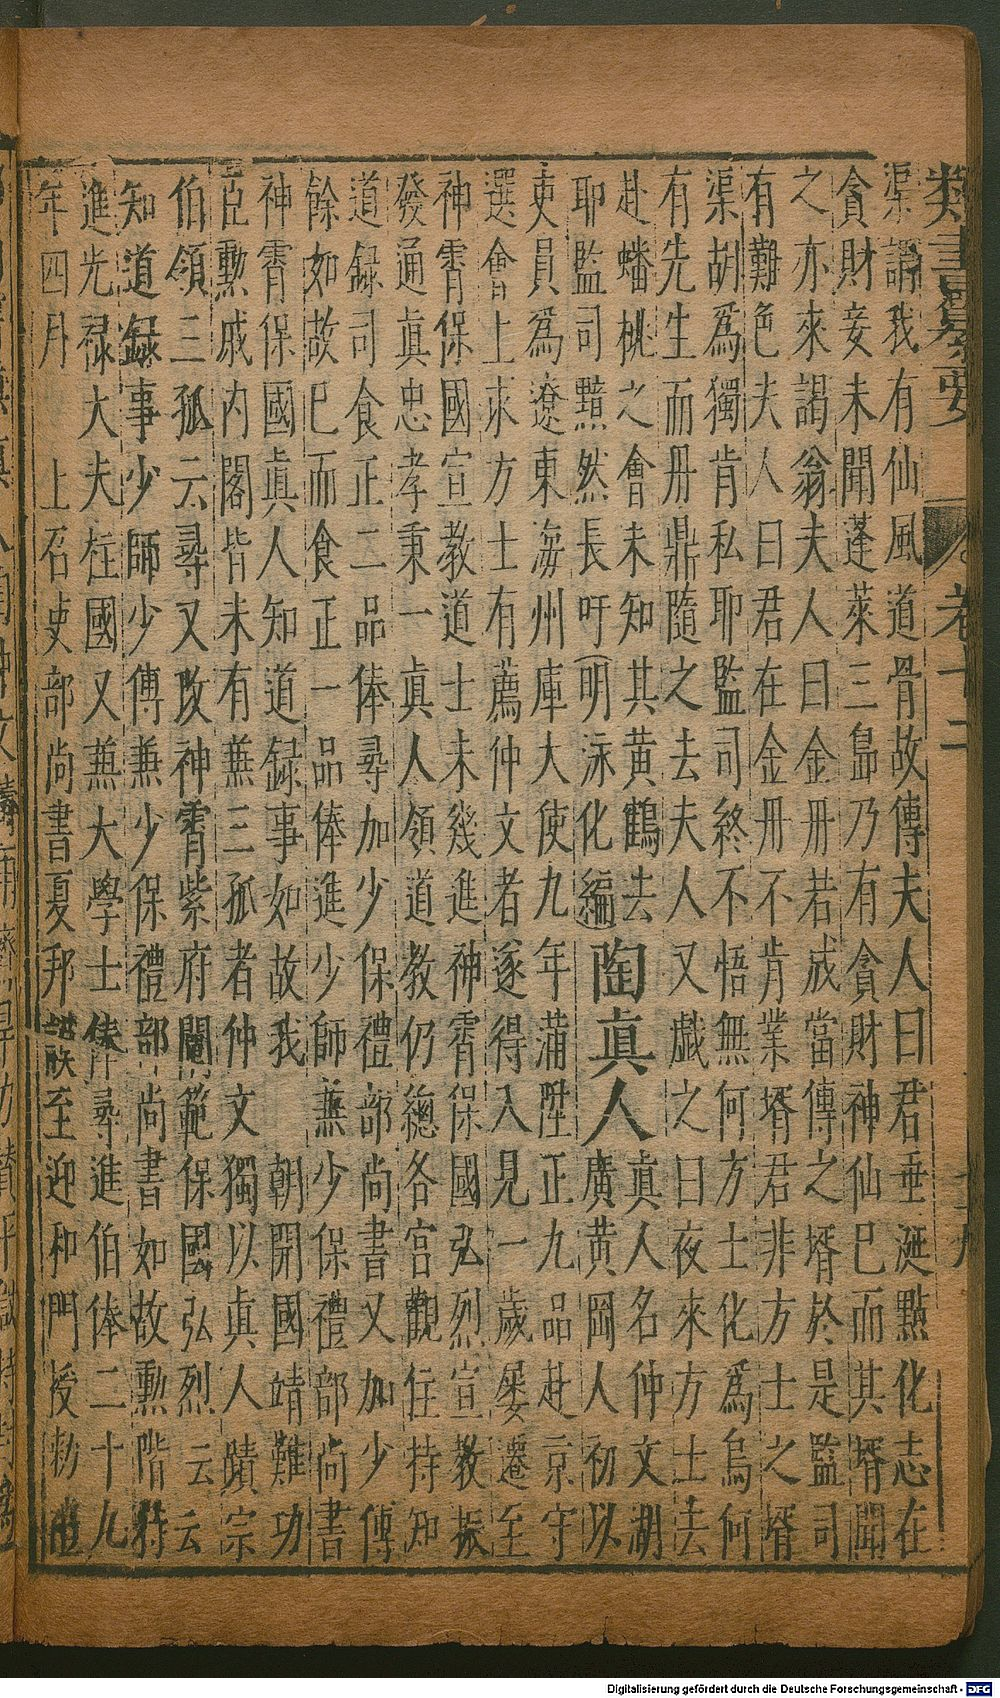 類書纂要 卷十二
渠謂我有仙風道骨故傳夫人曰君垂涎點化志在
貪財妾未聞蓬萊三島乃有貪財神仙已而其壻聞
之亦來謁翁夫人曰金丹若成當傳之壻於是監司
有難色夫人曰君在金丹不肯業壻君非方士之壻
渠胡爲獨肯私耶監司終不悟無何方士化爲烏何
有先生而丹鼎隨之去夫人又戲之曰夜來方士去
赴蟠桃之會未知其黃鶴去陶眞人眞人名仲文湖
耶監司黯然長吁明泳化編廣黃岡人初以
吏員爲遼東海州庫大使九年蒲陞正九品赴京守
選會上求方士有薦仲文者遂得入見一歲屢遷至
神霄保國宣教道士未幾進神霄保國弘烈宣教振
發通眞忠孝秉一眞人領道教仍總各宮觀住持知
道録司食正二品俸尋加少保禮部尚書又加少傅
餘如故已而食正一品俸進少師蕪少保禮部尚書
神霄保國眞人知道録事如故我 朝開國靖難功
臣勳戚内閣皆未有蕪三孤者仲文獨以眞人蹟宗
伯領三孤云尋又改神霄紫府闡範保國弘烈云云
知道録事少師少傅蕪少保禮部尚書如故勳階特
進光禄大夫柱國又蕪大學士俸尋進伯俸二十九
年四月 上召吏部尚書夏邦 至迎和門授勑
Digitalisierung gefördert durch die Deutsche Forschungsgemeinschaft - DFG